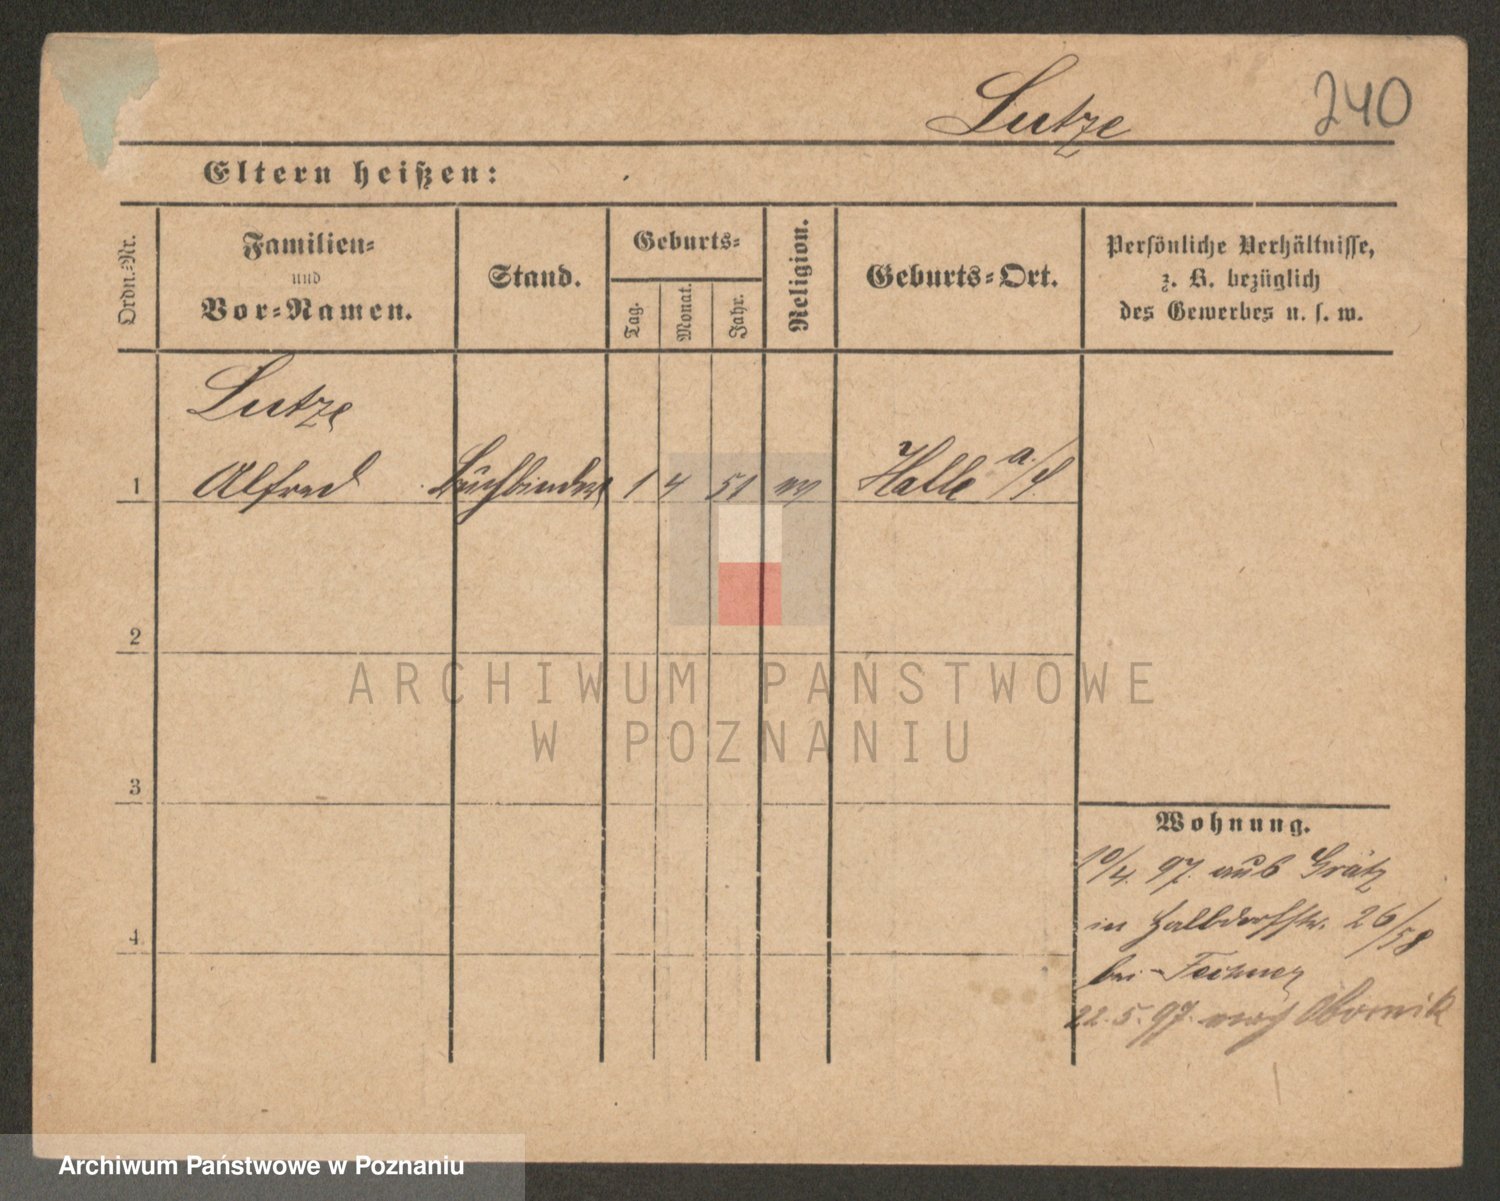 Lutze 240
Eltern heißen:
Ordn.-Nr.
Familien-
und
Vor-Namen.
Stand.
Geburts-
Tag.
Monat.
Jahr.
Religion.
Geburts-Ort.
Persönliche Verhältnisse,
z. B. bezüglich
des Gewerbes u. s. w.
Lutze
1 Alfred Buchbinder 1 4 51 ev Halle a/S
2
ARCHIWUM PAŃSTWOWE
W POZNANIU
3
Wohnung.
10/4. 97. aus Grätz
in Halbdorfstr. 26/58
4
bei
22. 5. 97. nach Obornik
Archiwum Państwowe w Poznaniu